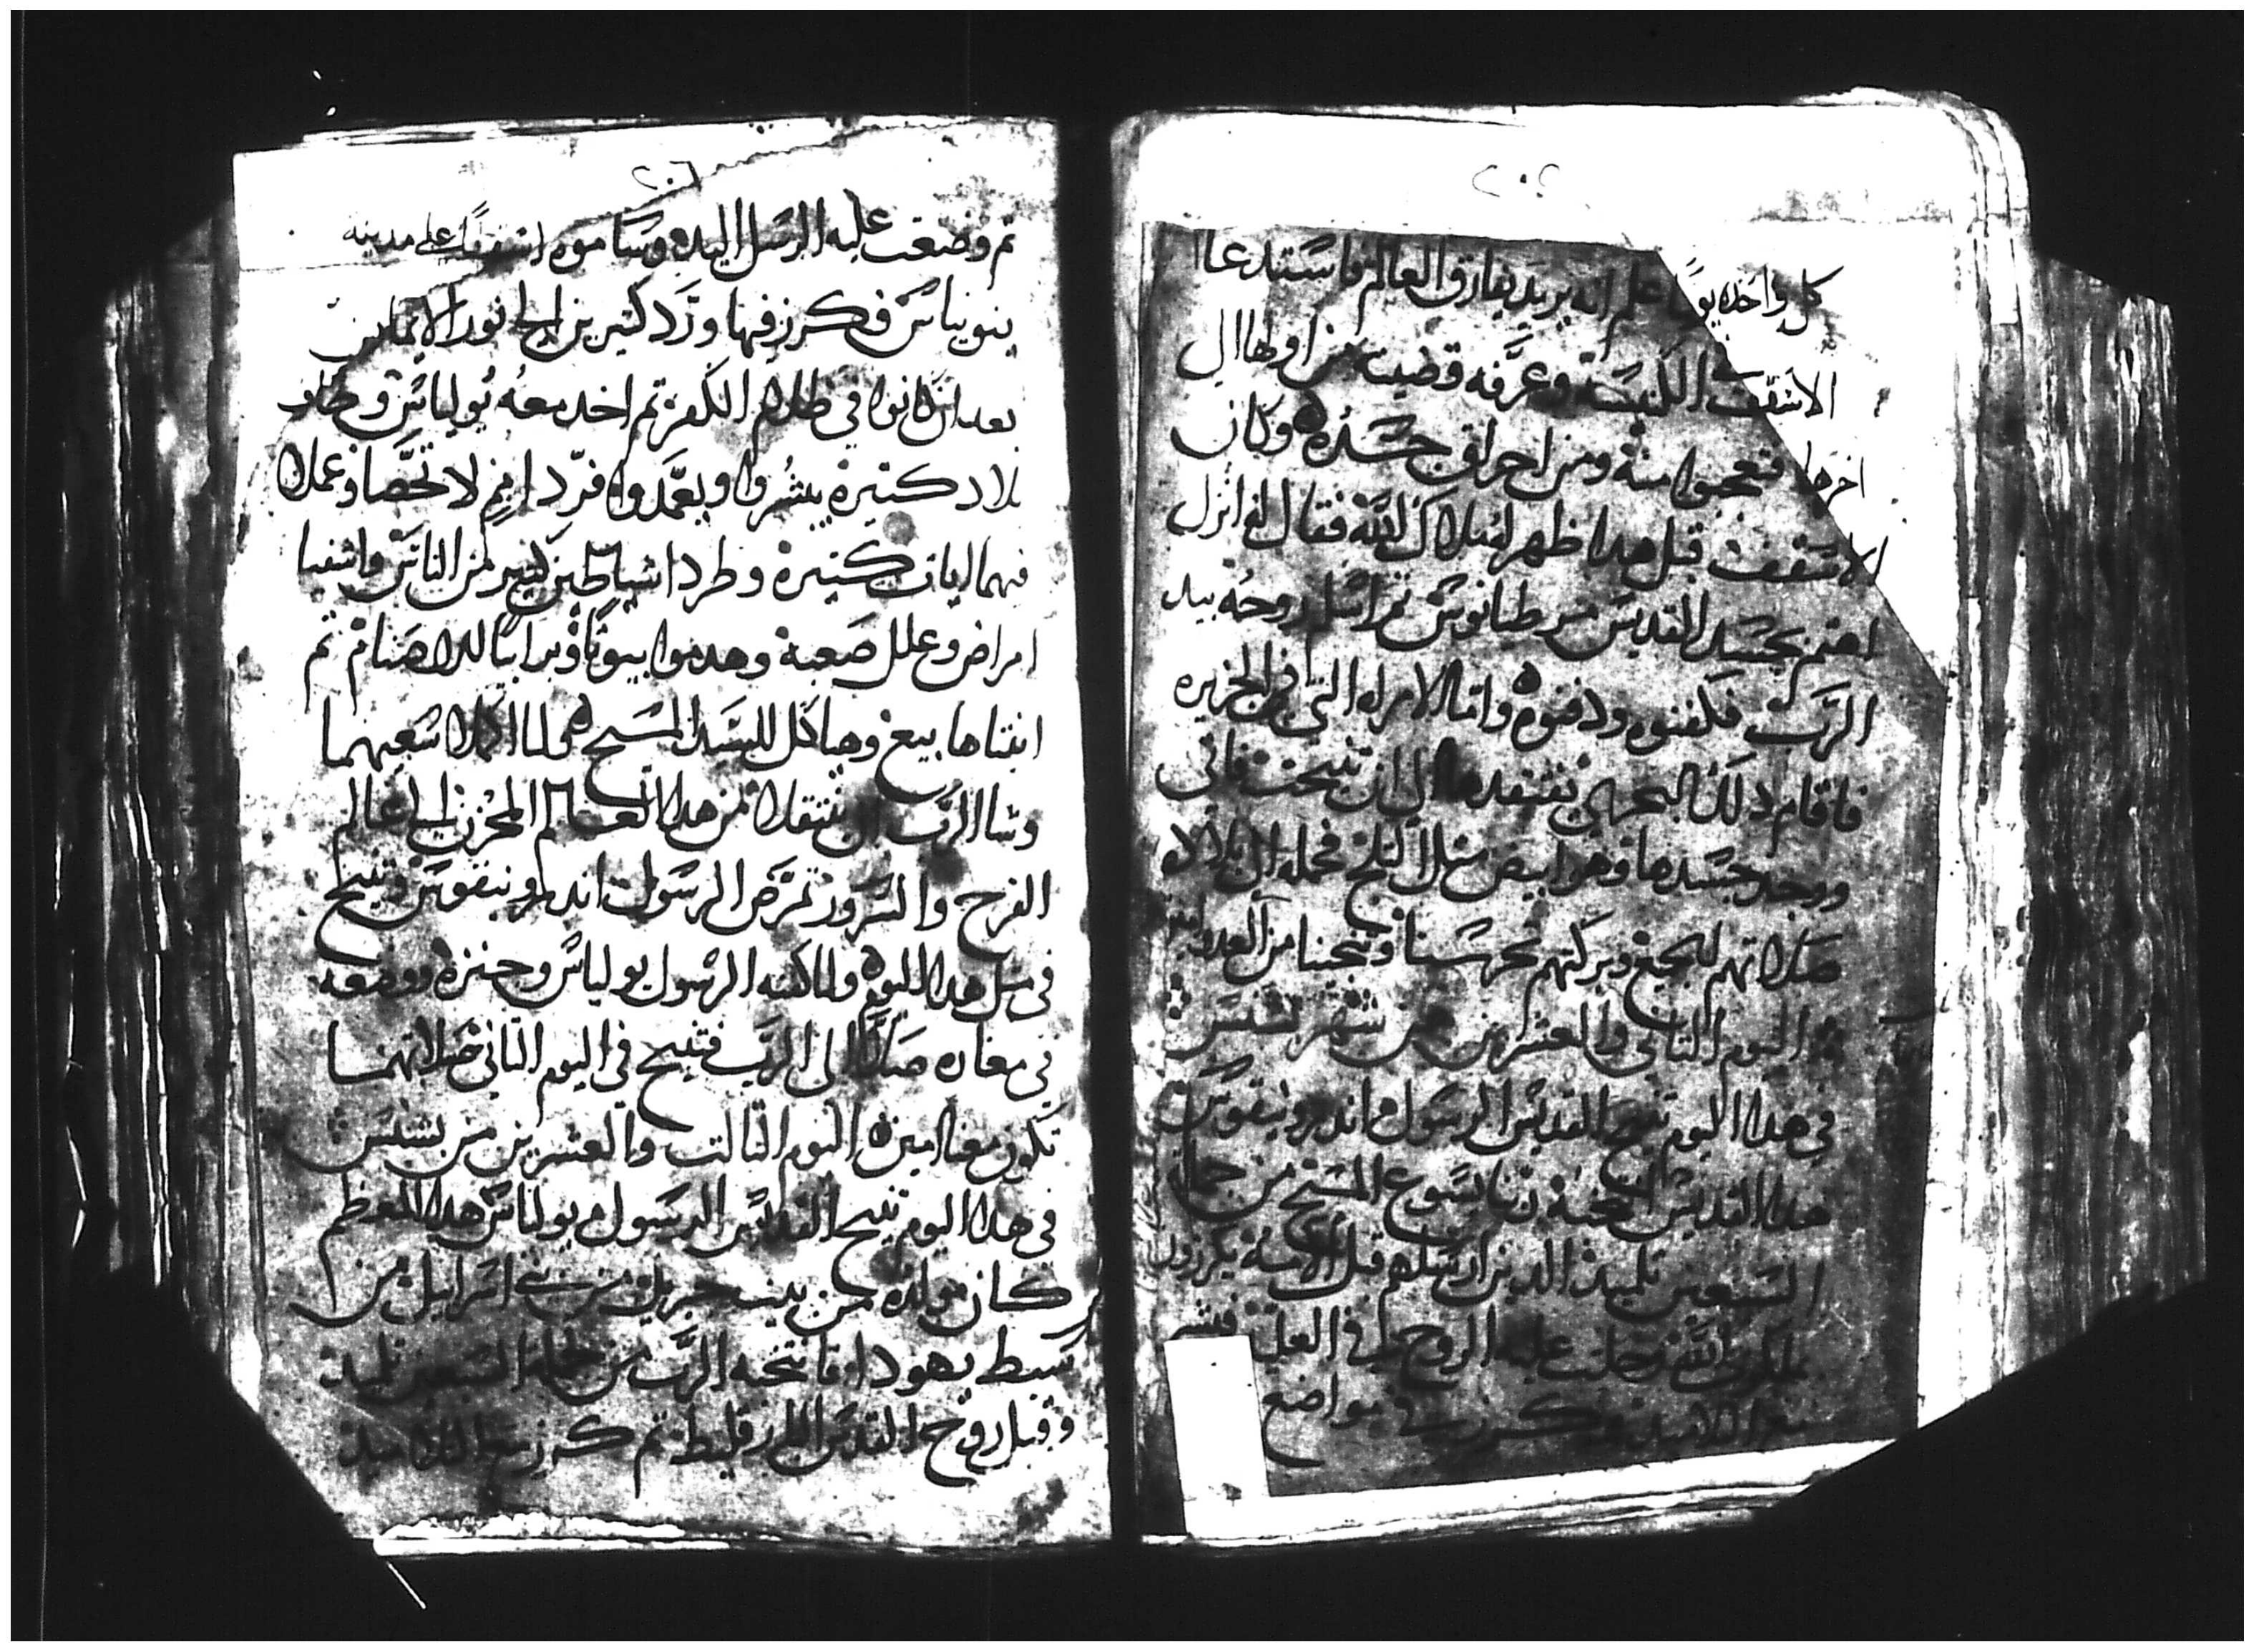 ٢٠٥
كل واحده يوما علم انه يريد يفارق العالم فاستدعا
الاسقف الكنيسة وعرفه قضيته من اولها الى
اخرها فتعجبوا منه ومن احراق جسده وكان
الاسقف قبل هدا ظهر له ملاك الله فقال له انزل
اهتم بجسد القديس مرطيانوس تم اسلم روحه بيد
الرب فكفنوه ودفنوه واما الامراه التي في الجزيره
فاقام دلك البحري يفتقدها الى ان تنيحت فاتى
ووجد جسدها وهو ابيض متل التلج فحمله الى بلاده
صلاتهم للجميع وبركتهم تحرسنا وتنجينا من العدو امين
اليوم التاني والعشرين من شهر بشنس
في هدا اليوم تنيح القديس الرسول اندرونيقوس
هدا القديس انتخبه ربنا يسوع المسيح من جملة
السبعين تلميد الدين ارسلهم قبل الامه يكرزون
بملكوت الله وحلت عليه الروح في العليه
مع التلاميد وكرز في مواضع
٢٠٦
تم وضعت عليه الرسل اليد وساموه اسقفا على مدينه
بنونياس فكرز فيها ورد كتيرين الى نور الايمان
بعد ان كانوا في ظلام الكفر تم اخد معه يولياس وطافو
بلاد كتيره يبشروا ويعمدوا فردا امم لا تحصا وعملا
فيهما ايات كتيره وطردا شياطين كتير من الناس واشفيا
امراض وعلل صعبة وهدموا بيوتا وبرابيا للاصنام تم
ابنتاها بيع وهياكل للسيد المسيح ولما اكملا سعيهما
وشا الرب ان ينتقلا من هدا العالم المحزن الى عالم
الفرح والسرور تمرض الرسول اندرونيقوس وتنيح
في متل هدا اليوم ولما كفنه الرسول يولياس وجنزه ووضعه
في مغاره صلا الى الرب فتنيح في اليوم التاني صلاتهما
تكون معنا امين اليوم التالت والعشرين من بشنس
في هدا اليوم تنيح القديس الرسول يولياس هدا المعظم
كان مولده من بيت جبريل من بني اسراييل من
سبط يهودا فانتخبه الرب من جملة السبعين تلميد
وقبل روح القدس البارقليط تم كرز مع التلاميد